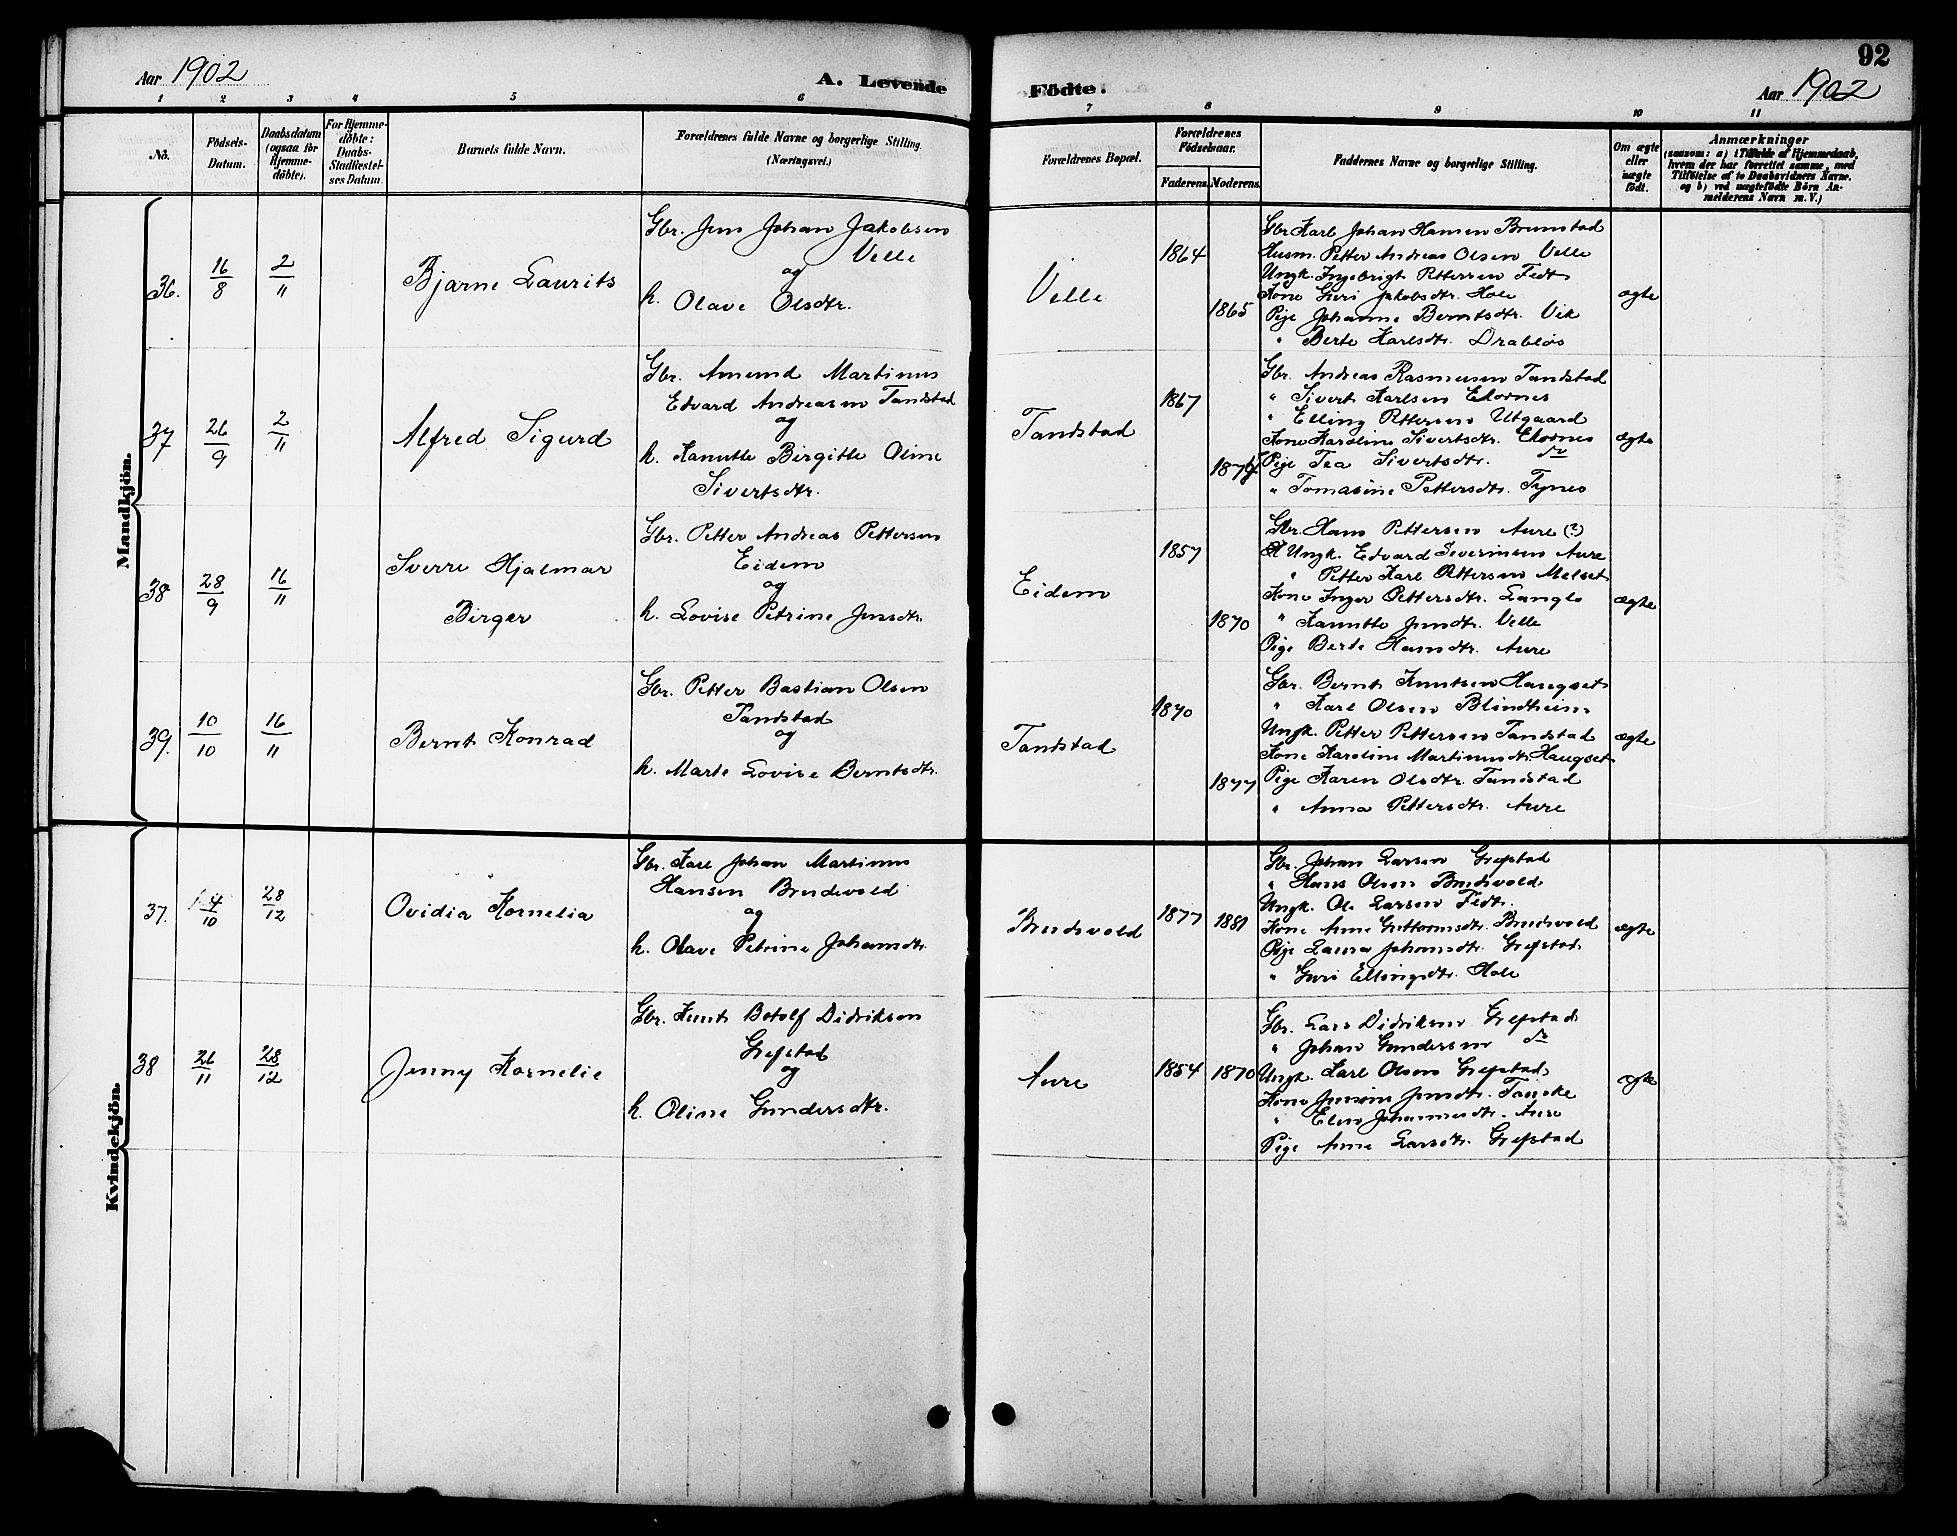 92
Aar 1902
A. Levende
Födte.
Aar 1902
1 2 3 4 5 6 7 8 9 10 11
No.
Födsels-Datum.
Daabsdatum (ogsaa for Hjemme-döbte).
For Hjemme-döbte: Daabs-Stadfæstel-ses Datum.
Barnets fulde Navn.
Forældrenes fulde Navne og borgerlige Stilling.
(Næringsvei.)
Forældrenes Bopæl.
Forældrenes Födselsaar.
Faderens. Moderens.
Faddernes Navne og borgerlige Stilling.
Om ægte eller uægte födt.
Anmærkninger
(saasom: a) i Tilfælde af Hjemmedaab,
hvem der har forrettet samme, med
Tilföielse af to Daabsvidners Navne,
og b) ved uægtefödte Börn An-
melderens Navn m. V.)
Mandkjön.
36. 16/8 2/11 Bjarne Laurits
Gbr. Jens Johan Jakobsen
Velle
og
h. Olave Olsdtr.
Velle
1864
1865
Gbr. Karl Johan Hansen Brunstad
Husm. Petter Andreas Olsen Velle
Ungk. Ingebrigt Pettersen Fedt
Kone Guri Jakobsdtr. Hole
Pige Johanne Berntsdtr. Vik
" Berte Karlsdtr. Drabløs
ægte
37 26/9 2/11 Alfred Sigurd
Gbr. Amund Martinus
Edvard Andreasen Tandstad
og
h. Kanutte Birgitte Oline
Sivertsdtr.
Tandstad
1867
Gbr. Andreas Rasmussen Tandstad
" Sivert Karlsen Ekornes
" Elling Pettersen Utgaard
Kone Karoline Sivertsdtr. Ekornes
Pige Tea Sivertsdtr. do
" Tomasine Pettersdtr. Tynes
ægte
38 28/9 16/11 Sverre Hjalmar
Birger
Gbr. Petter Andreas Pettersen
Eidem
og
h. Lovise Petrine Jensdtr.
Eidem
1857
1870
Gbr. Hans Pettersen Aure (?)
Ungk. Edvard Severinsen Aure
" Petter Karl Pettersen Melset
Kone Inger Pettersdtr. Langlo
" Kanutte Jensdtr. Velle
Pige Berte Hansdtr. Aure
ægte
39. 10/10 16/11 Bernt Konrad
Gbr. Petter Bastian Olsen
Tandstad
og
h. Marte Lovise Berntsdtr.
Tandstad
1870
1877
Gbr. Bernt Knutsen Haugset
" Karl Olsen Blindheim
Ungk. Petter Pettersen Tandstad
Kone Karoline Martinusdtr. Haugset
Pige Karen Olsdtr. Tandstad
" Anna Pettersdtr. Aure
ægte
Kvindekjön.
37. 4/10 28/12 Ovidia Kornelia
Gbr. Karl Johan Martinus
Hansen Brudevold
og
h. Olave Petrine Johansdtr.
Brudevold
1877 1881
Gbr. Johan Larsen Grepstad
" Hans Olsen Brudevold
Ungk. Ole Larsen Fedt.
Kone Anne Guttormsdtr. Brudevold
Pige Laura Johansdtr. Grepstad
" Guri Ellingsdtr. Hole
ægte
38 26/11 28/12 Jenny Kornelie
Gbr. Knut Botolf Didriksen
Grepstad
og
h. Oline Gundersdtr.
Aure
1854 1870
Gbr. Lars Didriksen Grepstad
" Johan Gundersen do
Ungk. Karl Olsen Grepstad
Kone Jensine Jensdtr.
" Elen Johannesdtr. Aure
Pige Anne Larsdtr. Grepstad
ægte